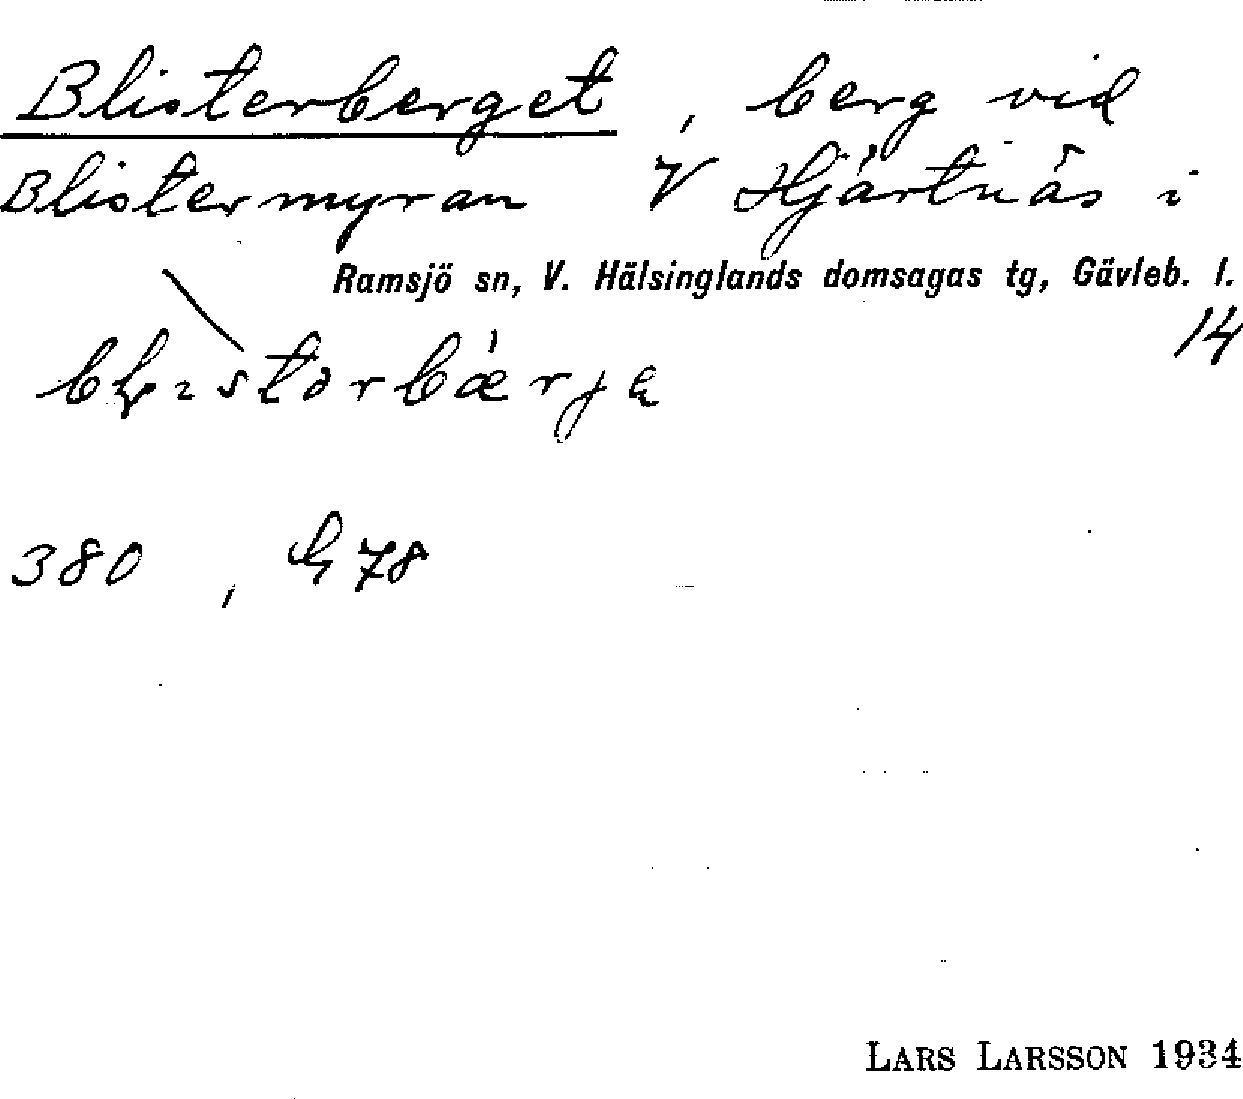 Blisterberget, berg vid
Blistermyran V Hjärtnäs i
Ramsjö sn, V. Hälsinglands domsagas tg, Gävleb. l.
14
380, G 78
LARS LARSSON 1934